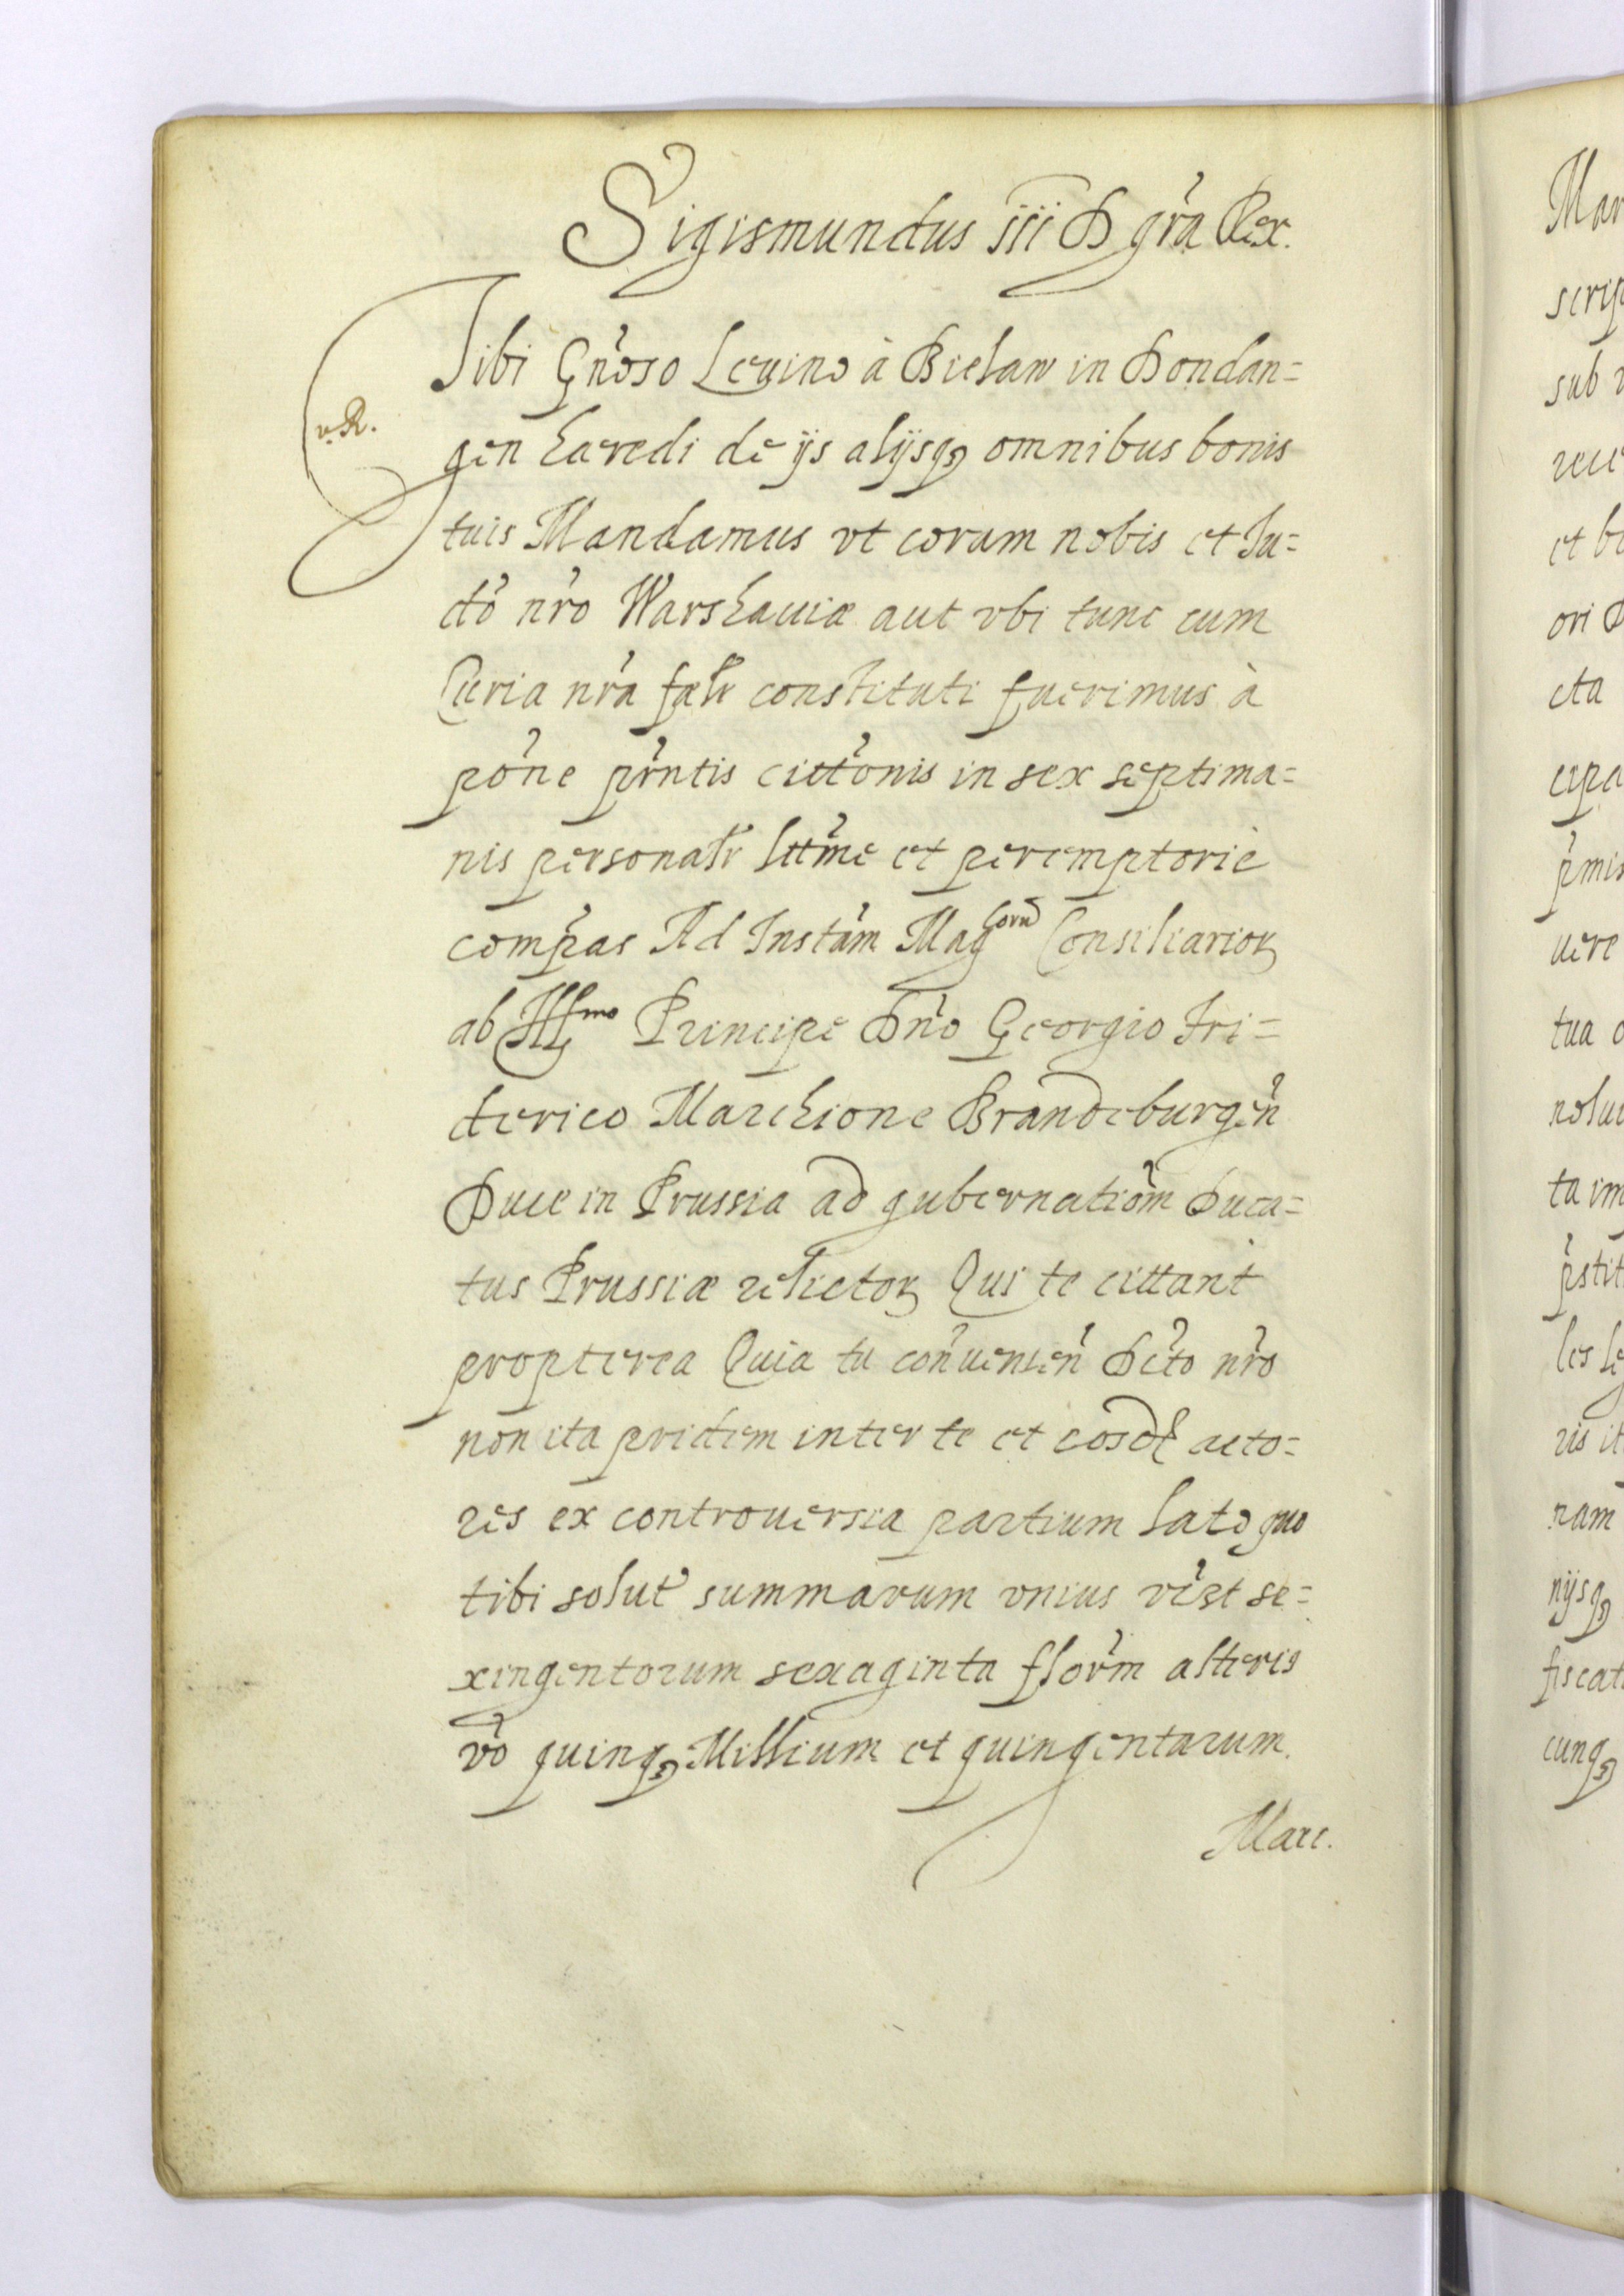 Sigismundus iii D gra͛ Rex.
Tibi Gn͛oso Leuino à Bielaw in Dondan=
v. R.
gen haeredi de ijs alijsq₃ omnibus bonis
tuis Mandamus vt coram nobis et Iu=
dõ nr͛o Warshauiæ aut vbi tunc cum
Curia nr͛a fælr constituti fuerimus à
po͛ne pr͛ntis citt͛onis in sex septima=
nis personalr ltt͛me et peremptorie
comp͛as Ad Instãm Mag^corũ Consiliarioꝝ
ab Ill^mo Principe Dn͛o Georgio Fri=
derico Marchione Brandeburgen͛
Duce in Prussia ad gubernatio͛m Duca=
tus Prussiæ relictoꝝ Qui te cittant
propterea Quia tu con͛uenien͛ Dc͛to nr͛o
non ita pridem inter te et eosdẽ acto=
res ex controuersia partium lato quo
tibi solut͛ summarum vnius vi͛zt se=
xingentorum sexaginta flor͛m alteris
vo͛ quinq₃ Millium et quingentarum
Marc.
Mar
scrip
sub
rece
et b
ori D
cta
cipa
p͛mis
uere
tua
nolu
ta im
p͛stit
les le
ris it
ram
nijsq₃
fiscat
cunq₃